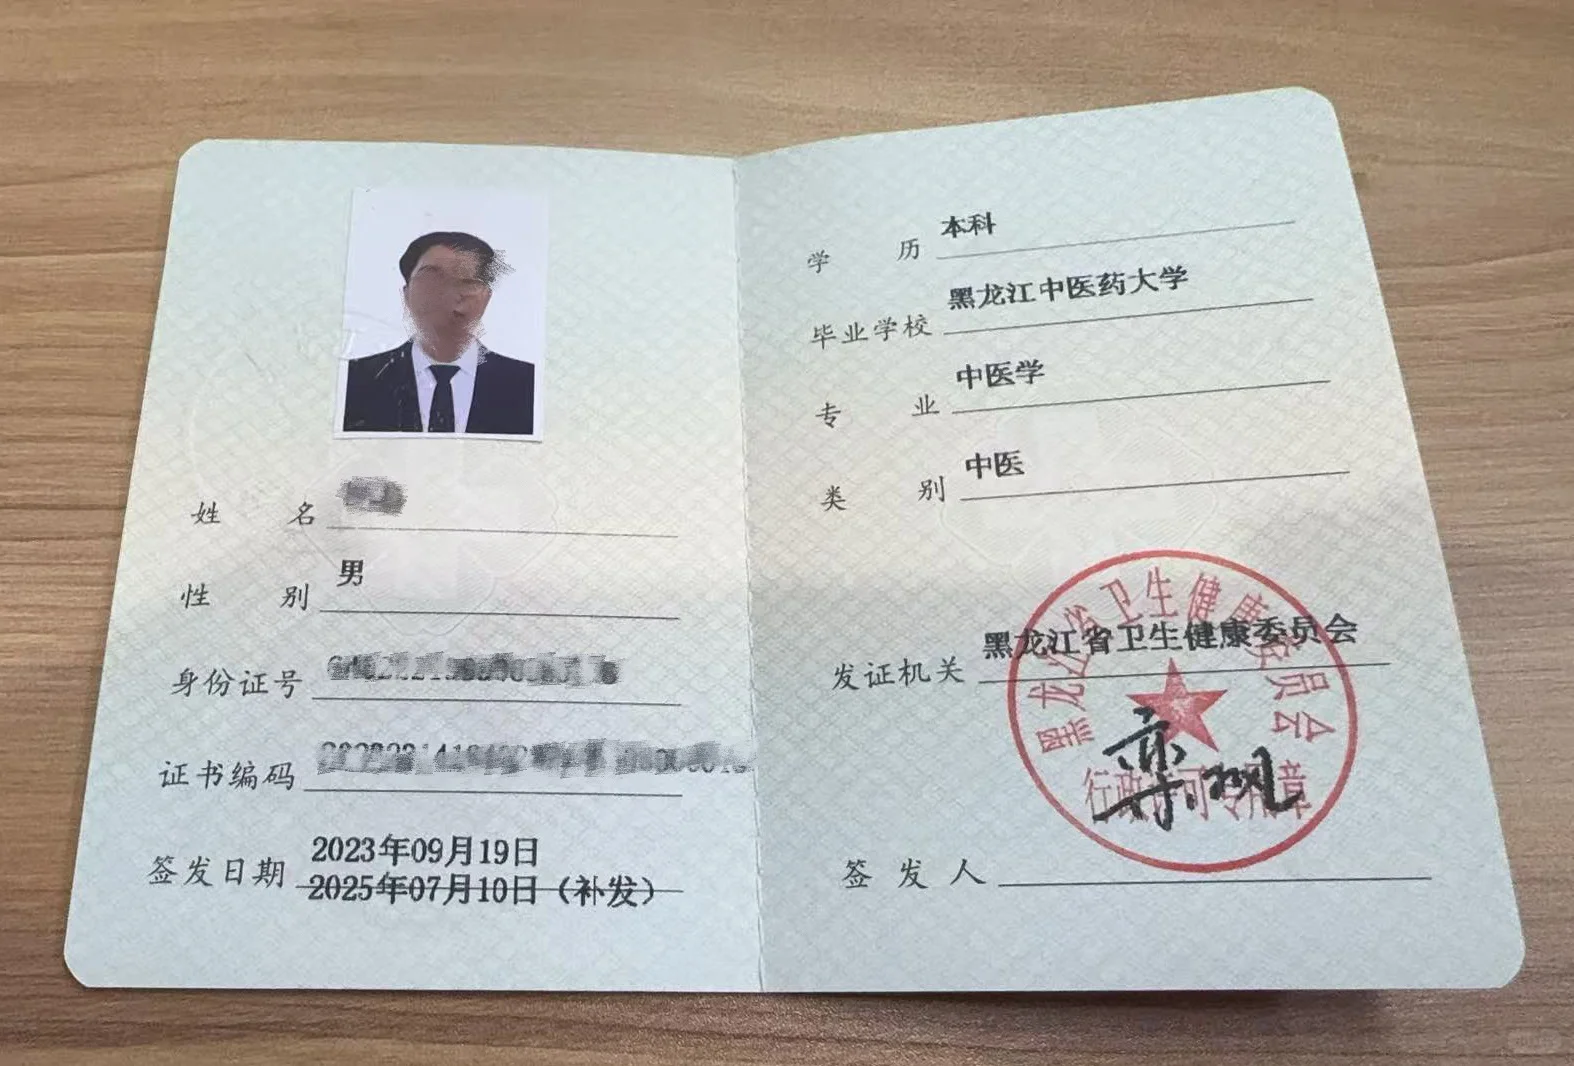 姓名
性别 男
身份证号
证书编码
签发日期 2023年09月19日
2025年07月10日（补发）
学历 本科
毕业学校 黑龙江中医药大学
专业 中医学
类别 中医
发证机关 黑龙江省卫生健康委员会
黑龙江省卫生健康委员会
行政许可专用章
签发人